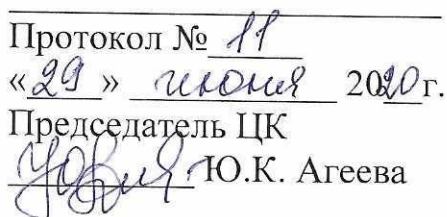 Протокол № 11
«29» июня 2020г.
Председатель ЦК
Ю.К. Агеева